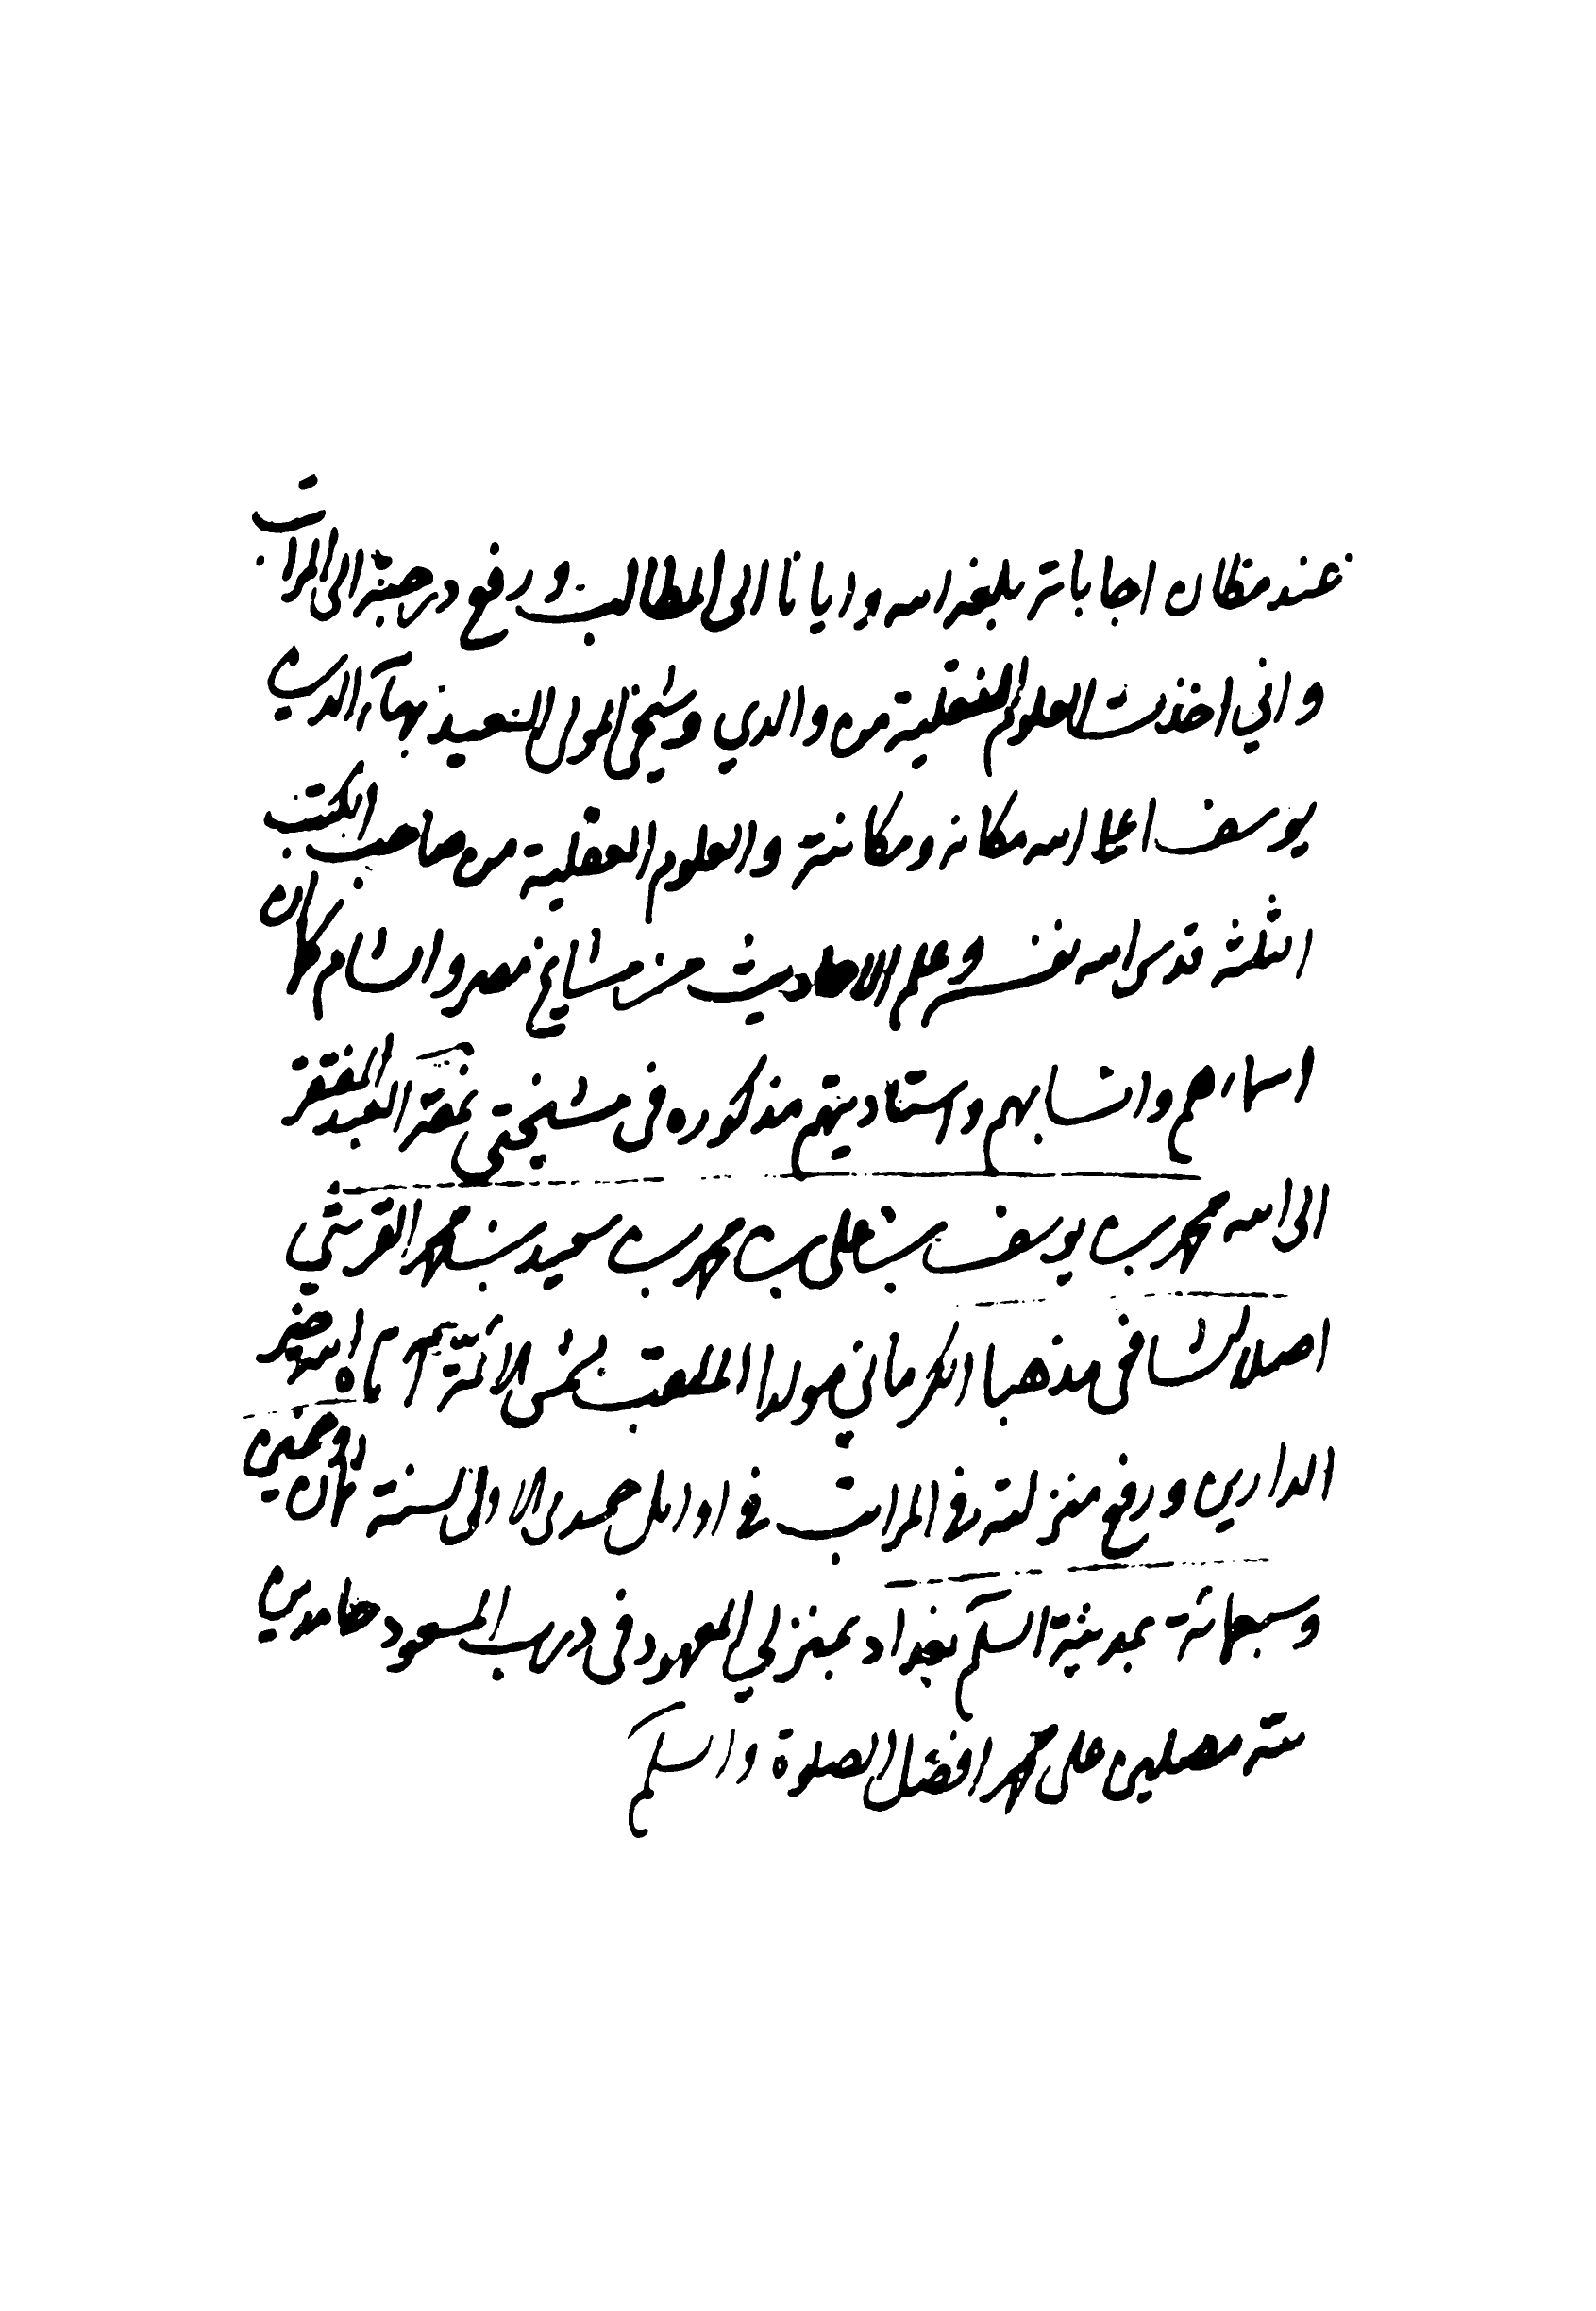 عند مظان اجاباته بلغه الله وايانا الى المطالب ورفع درجته الى المراتب
واني اخذت العلوم النقلية من والدي وشيخي المولى السعيد بهاء الدين
يوسف اعلا الله مكانه ومكانته والعلوم العقلية من صاحب الكتب
الثلثة قدس الله نفسه وعلم الاحاديث من مشايخ مصر والشام كان
اساميهم وانسابهم واستاديتهم مذكوره فى مشيختي نمقه العبد المفتقر
الى الله محمد بن يوسف بن على بن محمد بن سعيد بن محمد القرشي
اصلا الشافعى مذهبا الكرماني مولدا الملقب بشمس الائمة آتاه الله خير
الدارين ورفع منزلته فى المراتب في اوايل جمدى الاولى لسنة ثمان وخمسين
وسبعمائة بمدينة السلم بغداد بمنزلي المعهود فى درب المسعود حامدين
لله مصلين على محمد افضل الصلوة والسلم